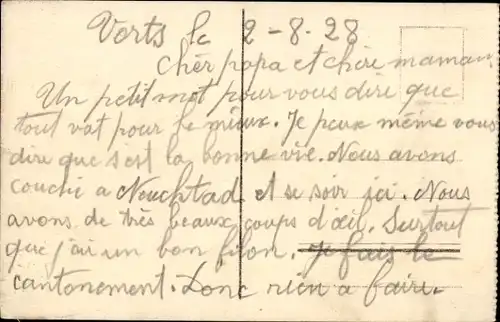 Verts le 2-8-28
Chèr papa et chère maman
Un petit mot pour vous dire que
tout vat pour le mieux. Je peux même vous
dire que s'est la bonne vie. Nous avons
couché a Neuchtad et se soir ici. Nous
avons de très beaux coups d'œil. Surtout
que j'ai un bon filon. Je fais le
cantonement. Donc rien a faire.